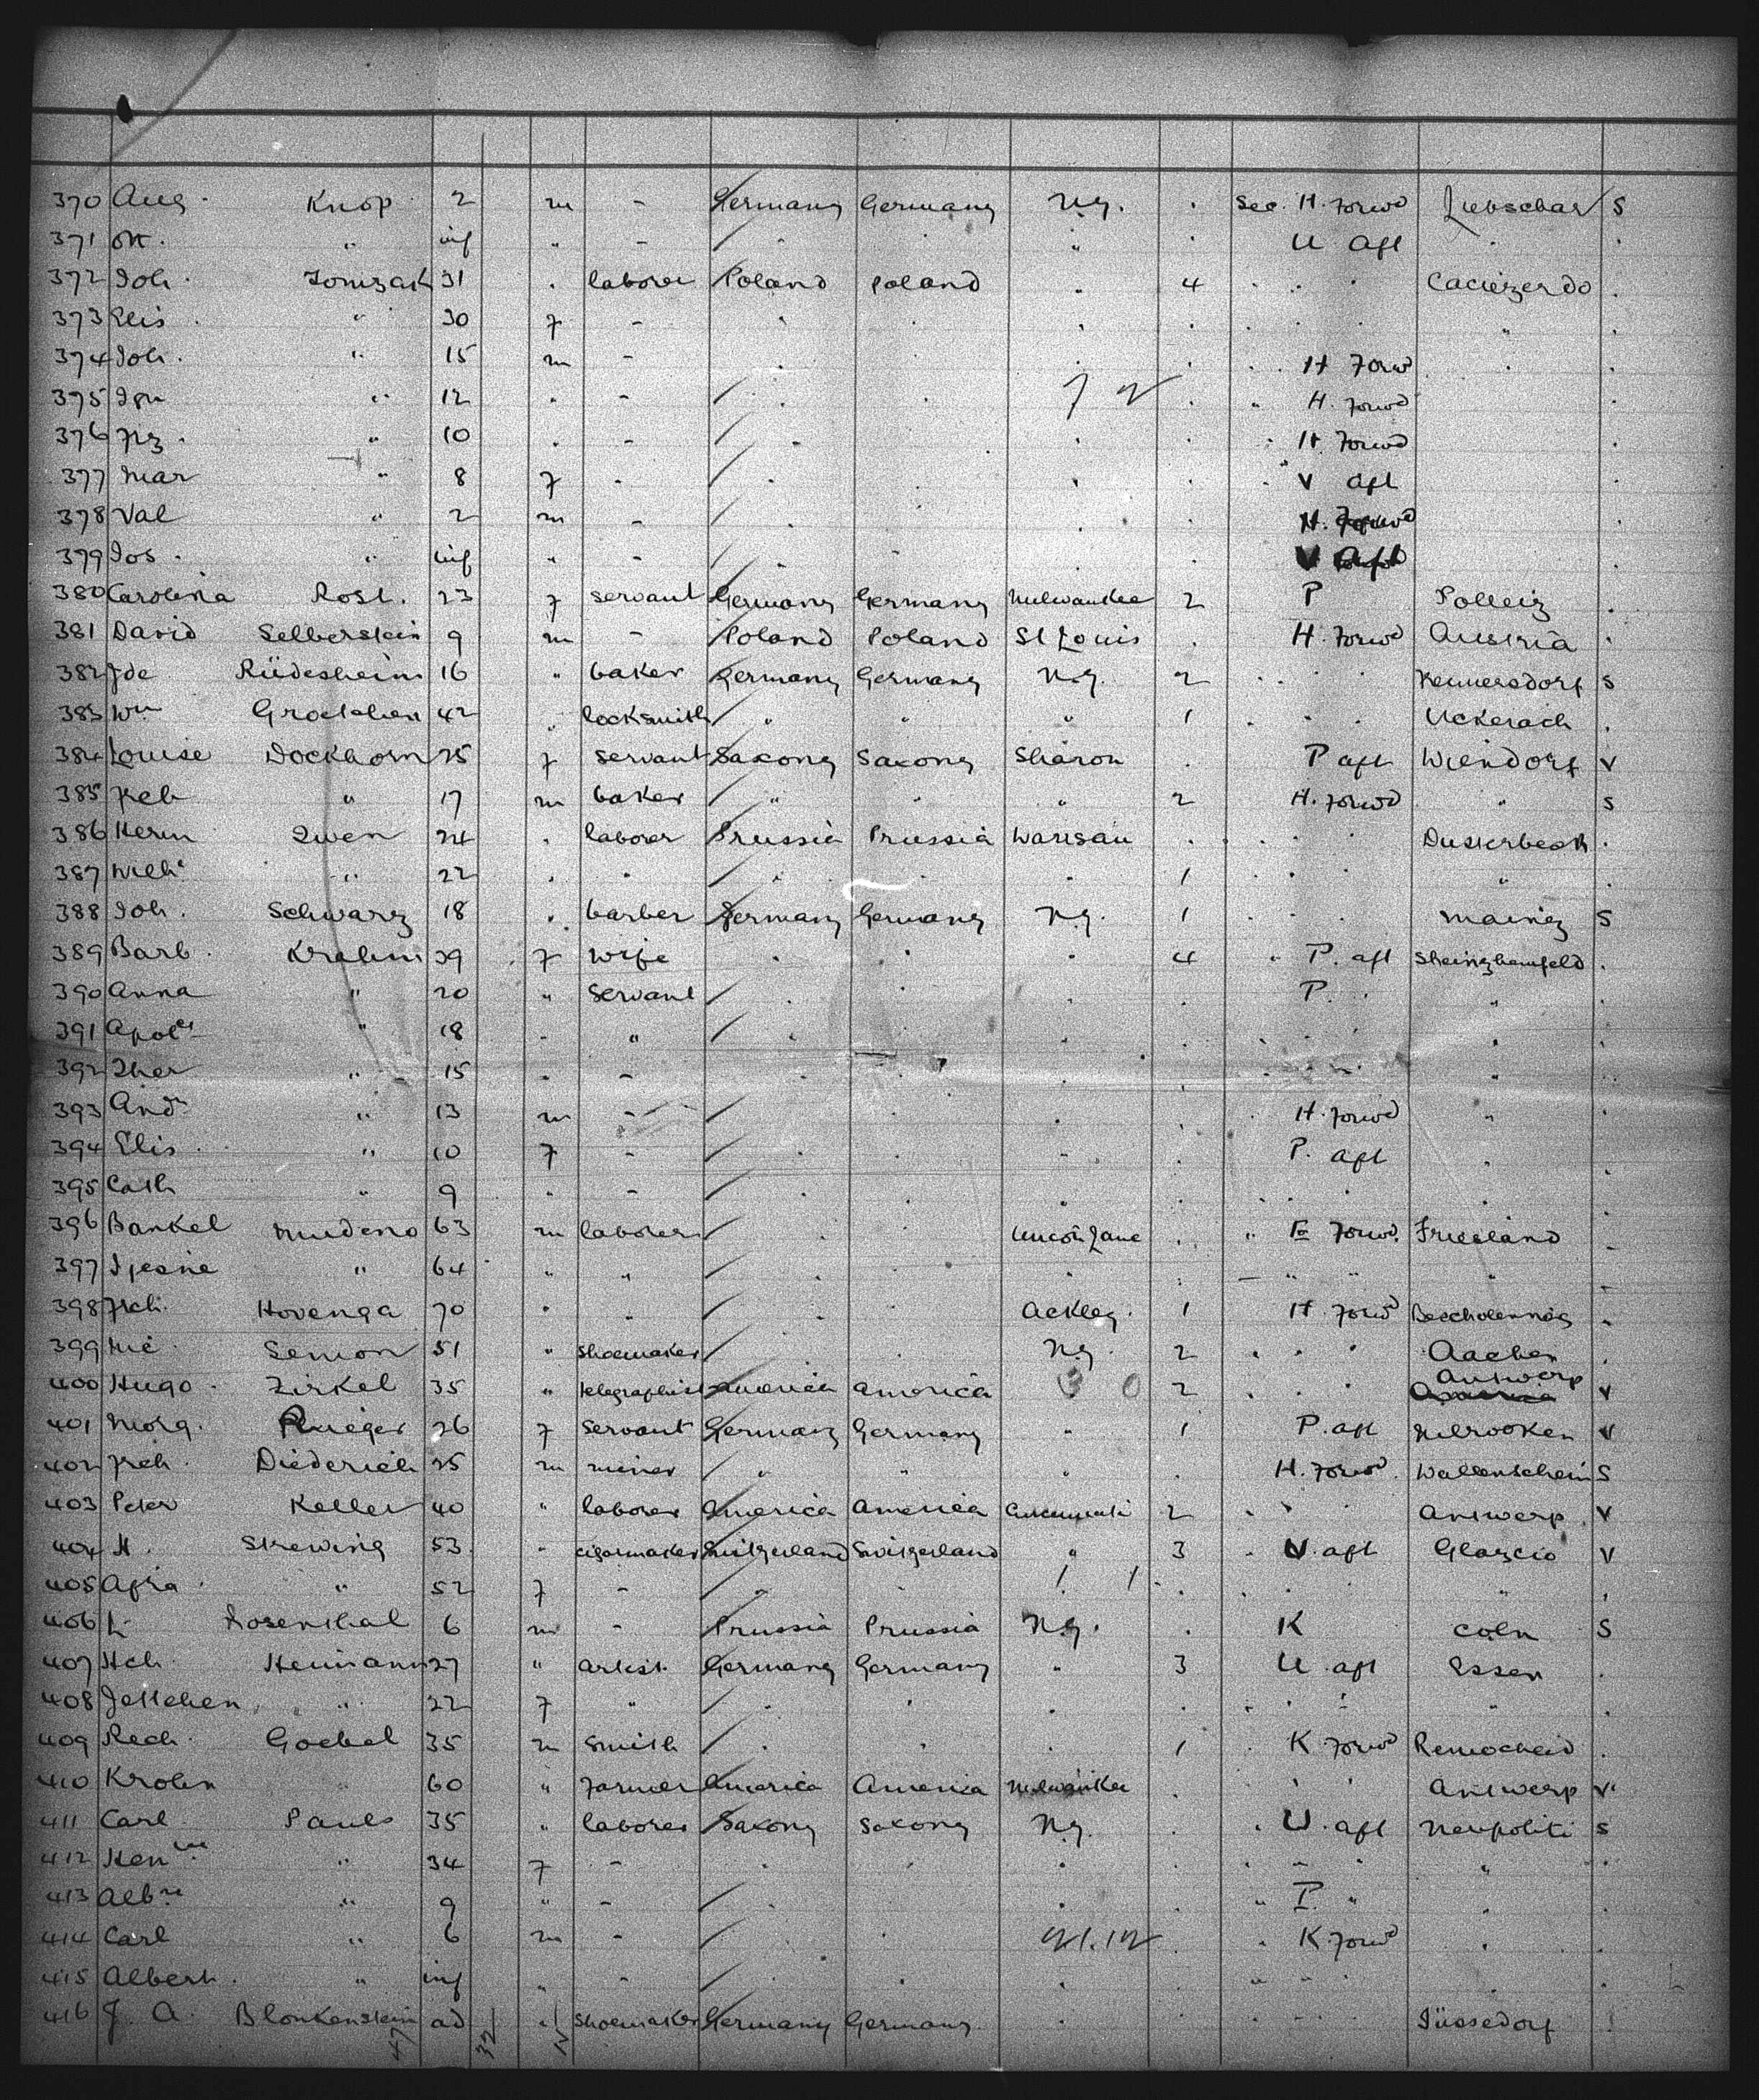 370 Aug. Knop 2 m - Germany Germany N.y. . Sec. H. Forwd Liebschar S
371 Ott. " inf " - . . " . U aft . .
372 Joh. Tomzak 31 . laborer Poland Poland . 4 . . . .
373 Elis . " 30 f - . . . . . . . " .
374 Joh. " 15 m - . . . . . H Forwd . .
375 Ign " 12 . - . . . " H. Forwd .
376 Frz. " 10 . - . . . . H. Forwd .
377 Mar " 8 f - . . . . V aft .
378 Val " 2 m - . . . . H. Forwd .
379 Jos. " inf " - . . . V aft
380 Carolina Rost. 23 f servant Germany Germany Milwaukee 2 P Polleiz .
381 David Selberstein 9 m - Poland Poland St Louis . H. Forwd Austria .
382 Jde Rüdesheim 16 " baker Germany Germany N.y. 2 . . . Hennersdorf S
383 Wm Grotchen 42 " locksmith " " " 1 . . . Uckerach .
384 Louise Dockhorn 25 f servant Saxony Saxony Sharon . P aft Wiendorf V
385 Feb " 17 m baker " " " 2 H. Forwd " S
386 Herm Zwen 24 . laborer Prussia Prussia Wausau . . . . Dusterbeck .
387 Wilh. " 22 . " . . " 1 . . . " .
388 Joh. Schwarz 18 . barber Germany Germany N.y. 1 . . . Mainz S
389 Barb. Krehm 39 f Wife . . " 4 " P. aft .
390 Anna " 20 " Servant . . . . P. . " .
391 Apola " 18 - " . . . . . . . .
392 Ther " 15 . - . . . . . . . " .
393 Andr " 13 m - . . . H. Forwd " .
394 Elis. " 10 f - . . . . P. aft . .
395 Cath " 9 . - . . . . . . . .
396 Bankel 63 m laborer . . . " E Forwd. Friesland -
397 " 64 " " . . " . - " " " -
398 Frch. Hovenga 70 " " . . Ackley. 1 H. Forwd .
399 Nic. Semon 51 " Shoemaker . N.y. 2 . . . Aachen .
400 Hugo. Zirkel 35 " telegraphist America America 3 0 2 . . . Antwerp V
401 Morg. Rueger 26 f Servant Germany Germany " 1 P. aft V
402 Frch. Diederich 25 m miner " " " . H. Forwd. Wallenschein S
403 Peter Keller 40 " laborer America America Cincinnati 2 . . . Antwerp V
404 H. Strewing 53 " cigarmaker Switzerland Switzerland " 3 . V. aft V
405 Afra. " 52 f - " . / / . . . . " .
406 L. Rosenthal 6 m - Prussia Prussia N.y. . K Coln S
407 Hch. Heimann 27 " artist Germany Germany " 3 U. aft Essen .
408 Jettchen " 22 f " . . . . . . . " .
409 Rech. Goebel 35 m Smith . " . 1 . K Forwd Remscheid .
410 Krohn " 60 " Farmer America America Milwaukee . . . Antwerp V
411 Carl Pauls 35 " laborer Saxony Saxony N.y. . . U. aft Neupoliti S
412 " 34 f - . . . . . - . " .
413 " 9 " - . . . . " P. " . .
414 Carl " 6 m - . . 21.12 . . K Forwd . .
415 Albert. " inf " - . . . . " " . . .
416 J. A. Blankenstein ad . Shoemaker Germany Germany . . . . . Düssedorf .
47 32 15